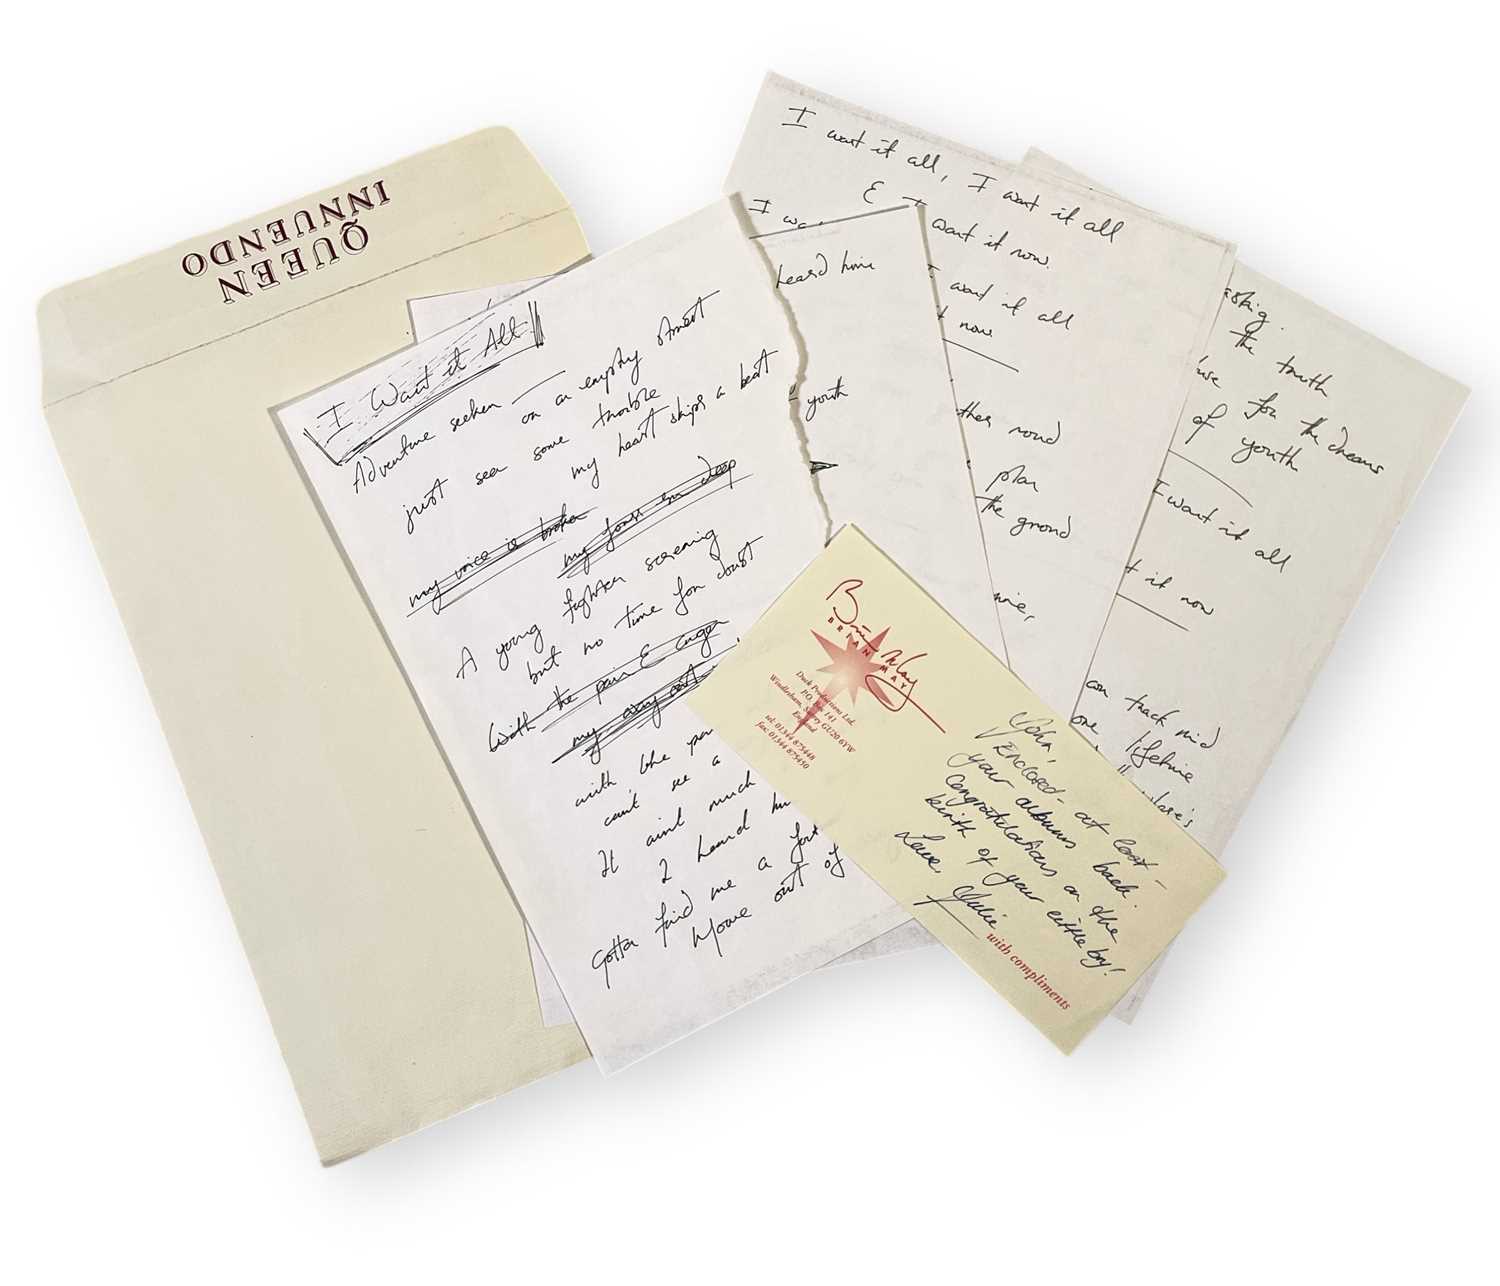 QUEEN
INNUENDO
I Want it All
Adventure seeker — on an empty street
just seen some trouble
my heart skips a beat
my voice is broken
my fears run deep
A young fighter screaming
but no time for doubt
With the pain & anger
my way out
with the
can't see a
It aint much
I heard
Gotta find me a
Move out of
I want it all, I want it all
& I want it now.
I
heard him
youth
I want it all
it now
round
plan
the ground
the truth
for the dreams
of youth
I want it all
it now
track mind
one lifetime
Brian May
BRIAN MAY
Duck Productions Ltd.
P.O. Box 141
Windlesham, Surrey GU20 6YW
England
tel: 01344 875448
fax: 01344 875450
John,
Enclosed - at last -
your albums back.
Congratulations on the
birth of your little boy!
Love, Julie
with compliments